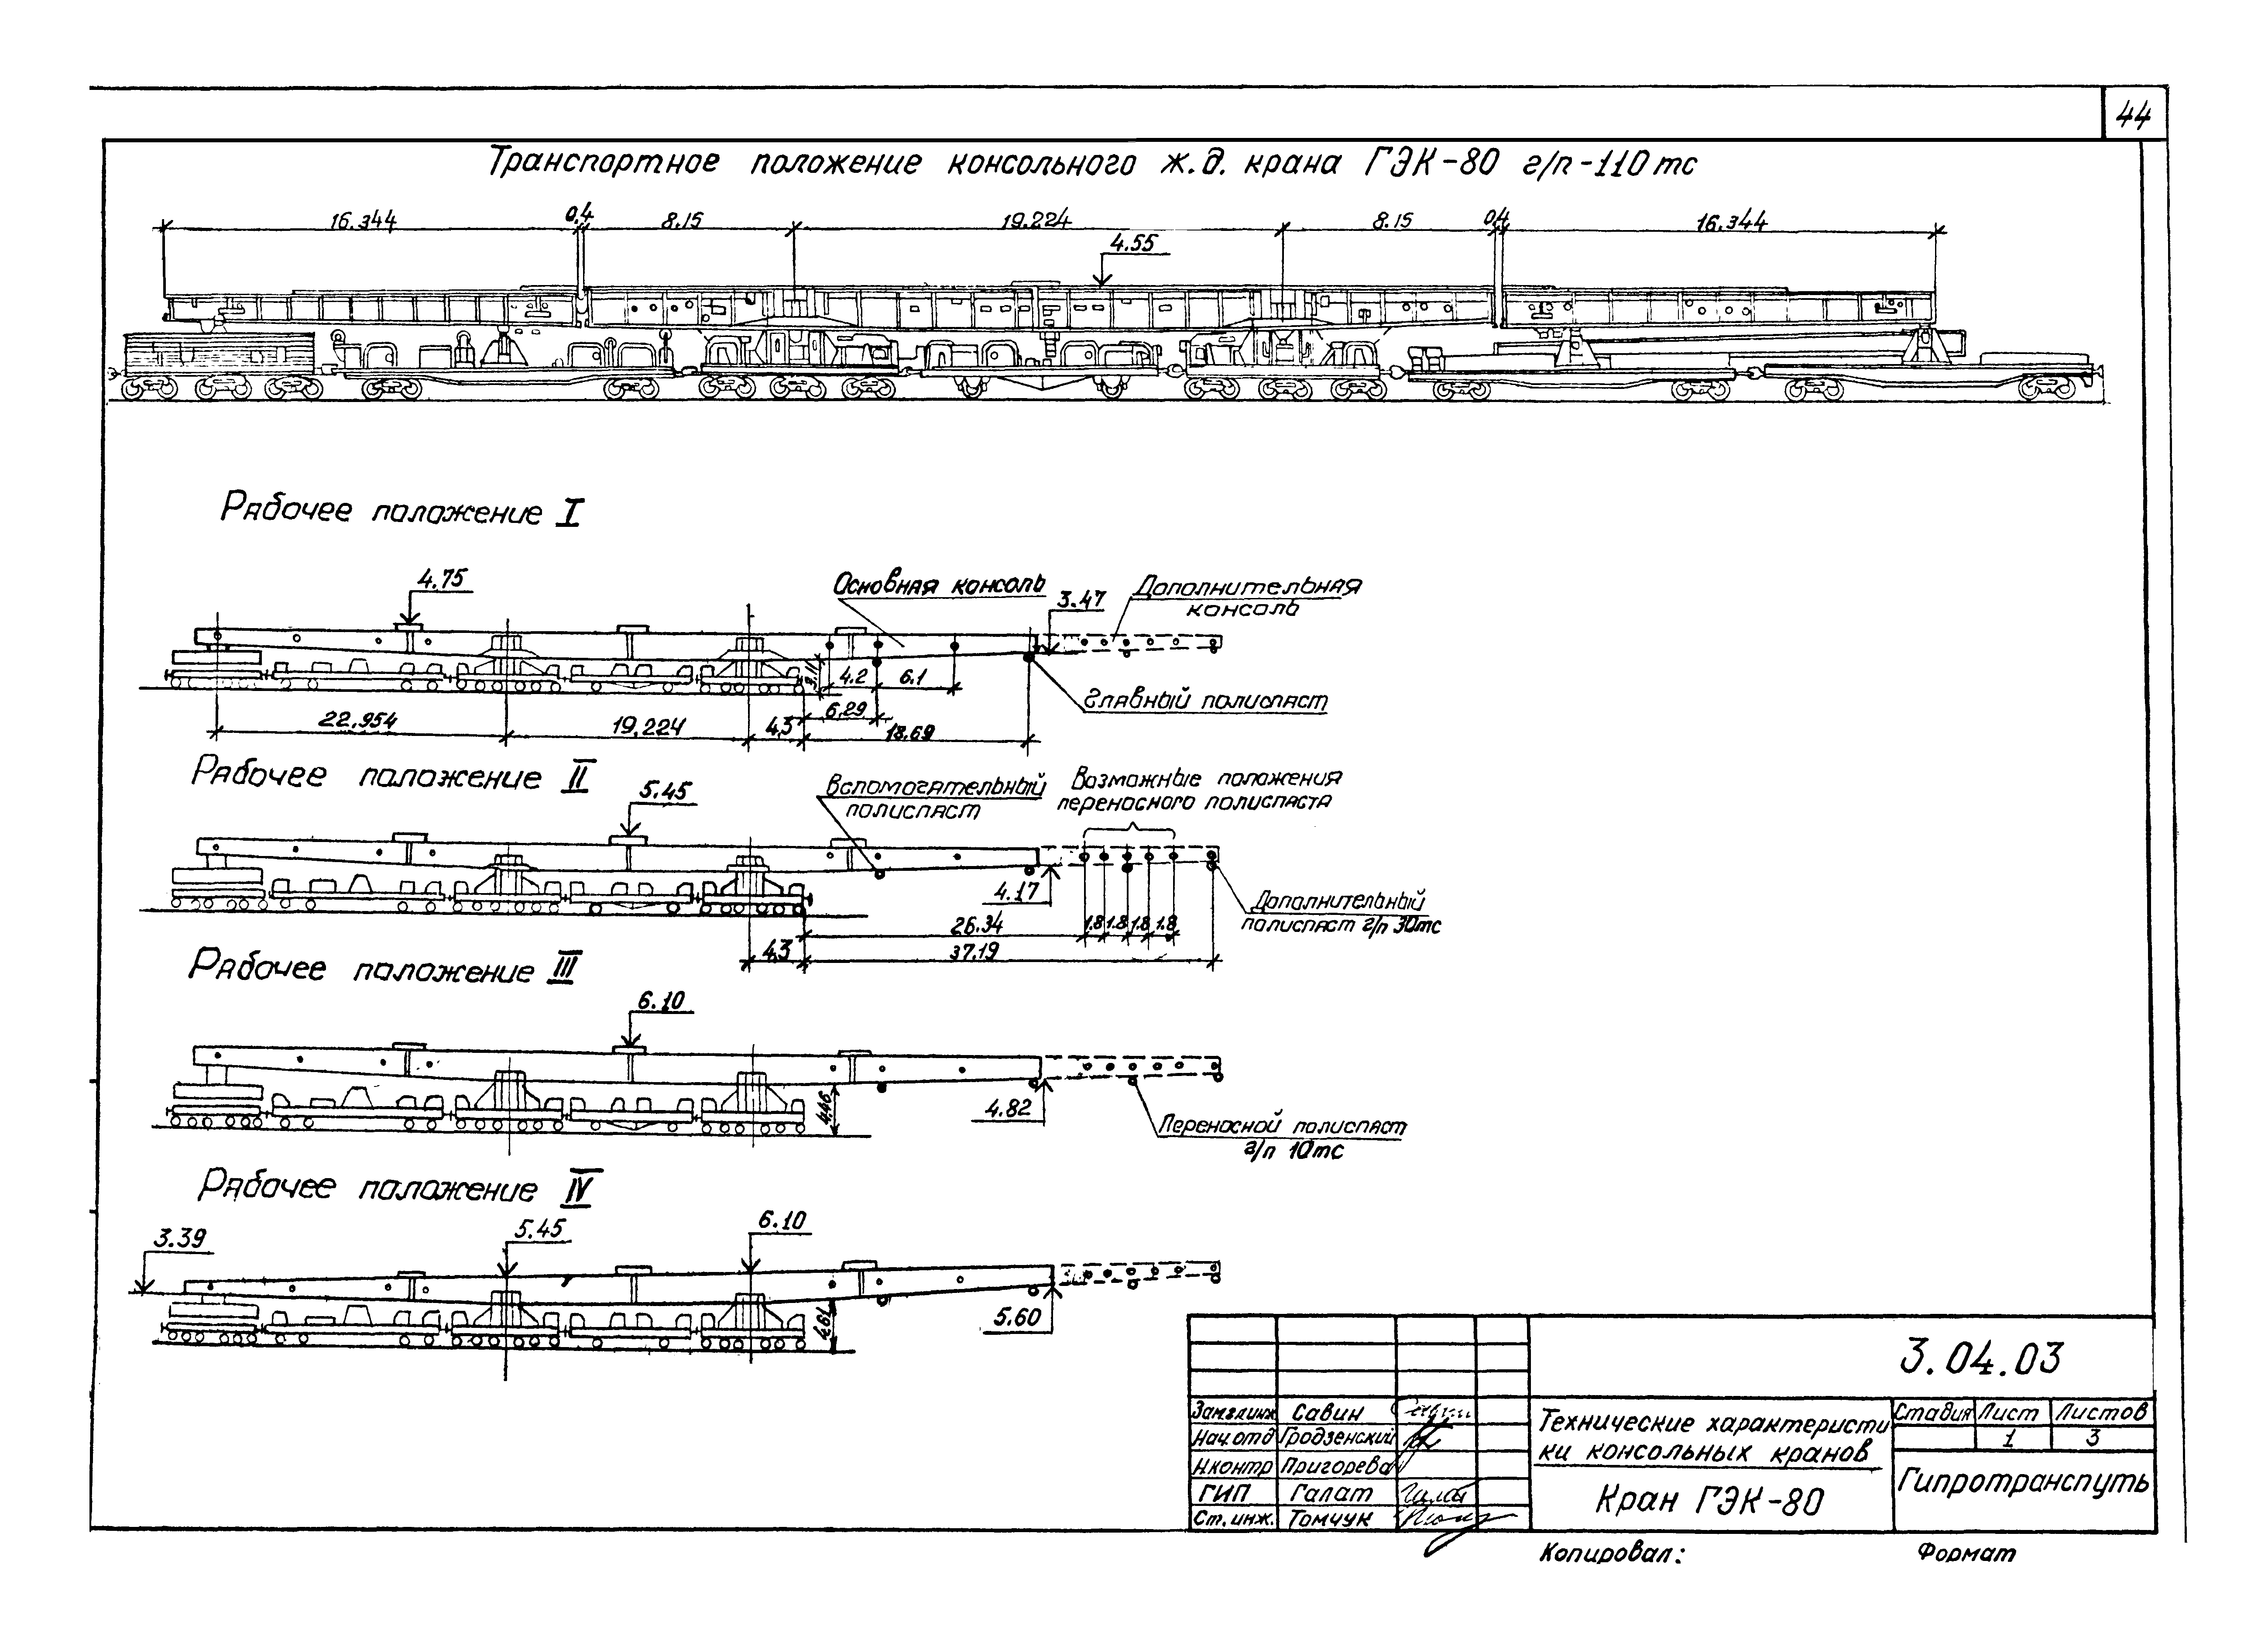 44
Транспортное положение консольного ж.д. крана ГЭК-80 г/п-110тс
16.344 0.4 8.15 19.224 8.15 0.4 16.344
4.55
Рабочее положение I
4.75
Основная консоль
3.47
Дополнительная
консоль
3.11
4.2 6.1
Главный полиспаст
6.29
22.954 19.224 4.3 18.69
Рабочее положение II
5.45
Вспомогательный
полиспаст
Возможные положения
переносного полиспаста
4.17
Дополнительный
полиспаст г/п 30тс
26.34 1.8 1.8 1.8 1.8
4.3 37.19
Рабочее положение III
6.10
4.46
4.82
Переносной полиспаст
г/п 10тс
Рабочее положение IV
3.39
5.45
6.10
4.61
5.60
3.04.03
Зам.гл.инж Савин
Нач.отд Гродзенский
Н.контр Пригорева
ГИП Галат
Ст.инж. Томчук
Технические характеристи
ки консольных кранов
Кран ГЭК-80
Стадия Лист Листов
1 3
Гипротранспуть
Копировал: Формат